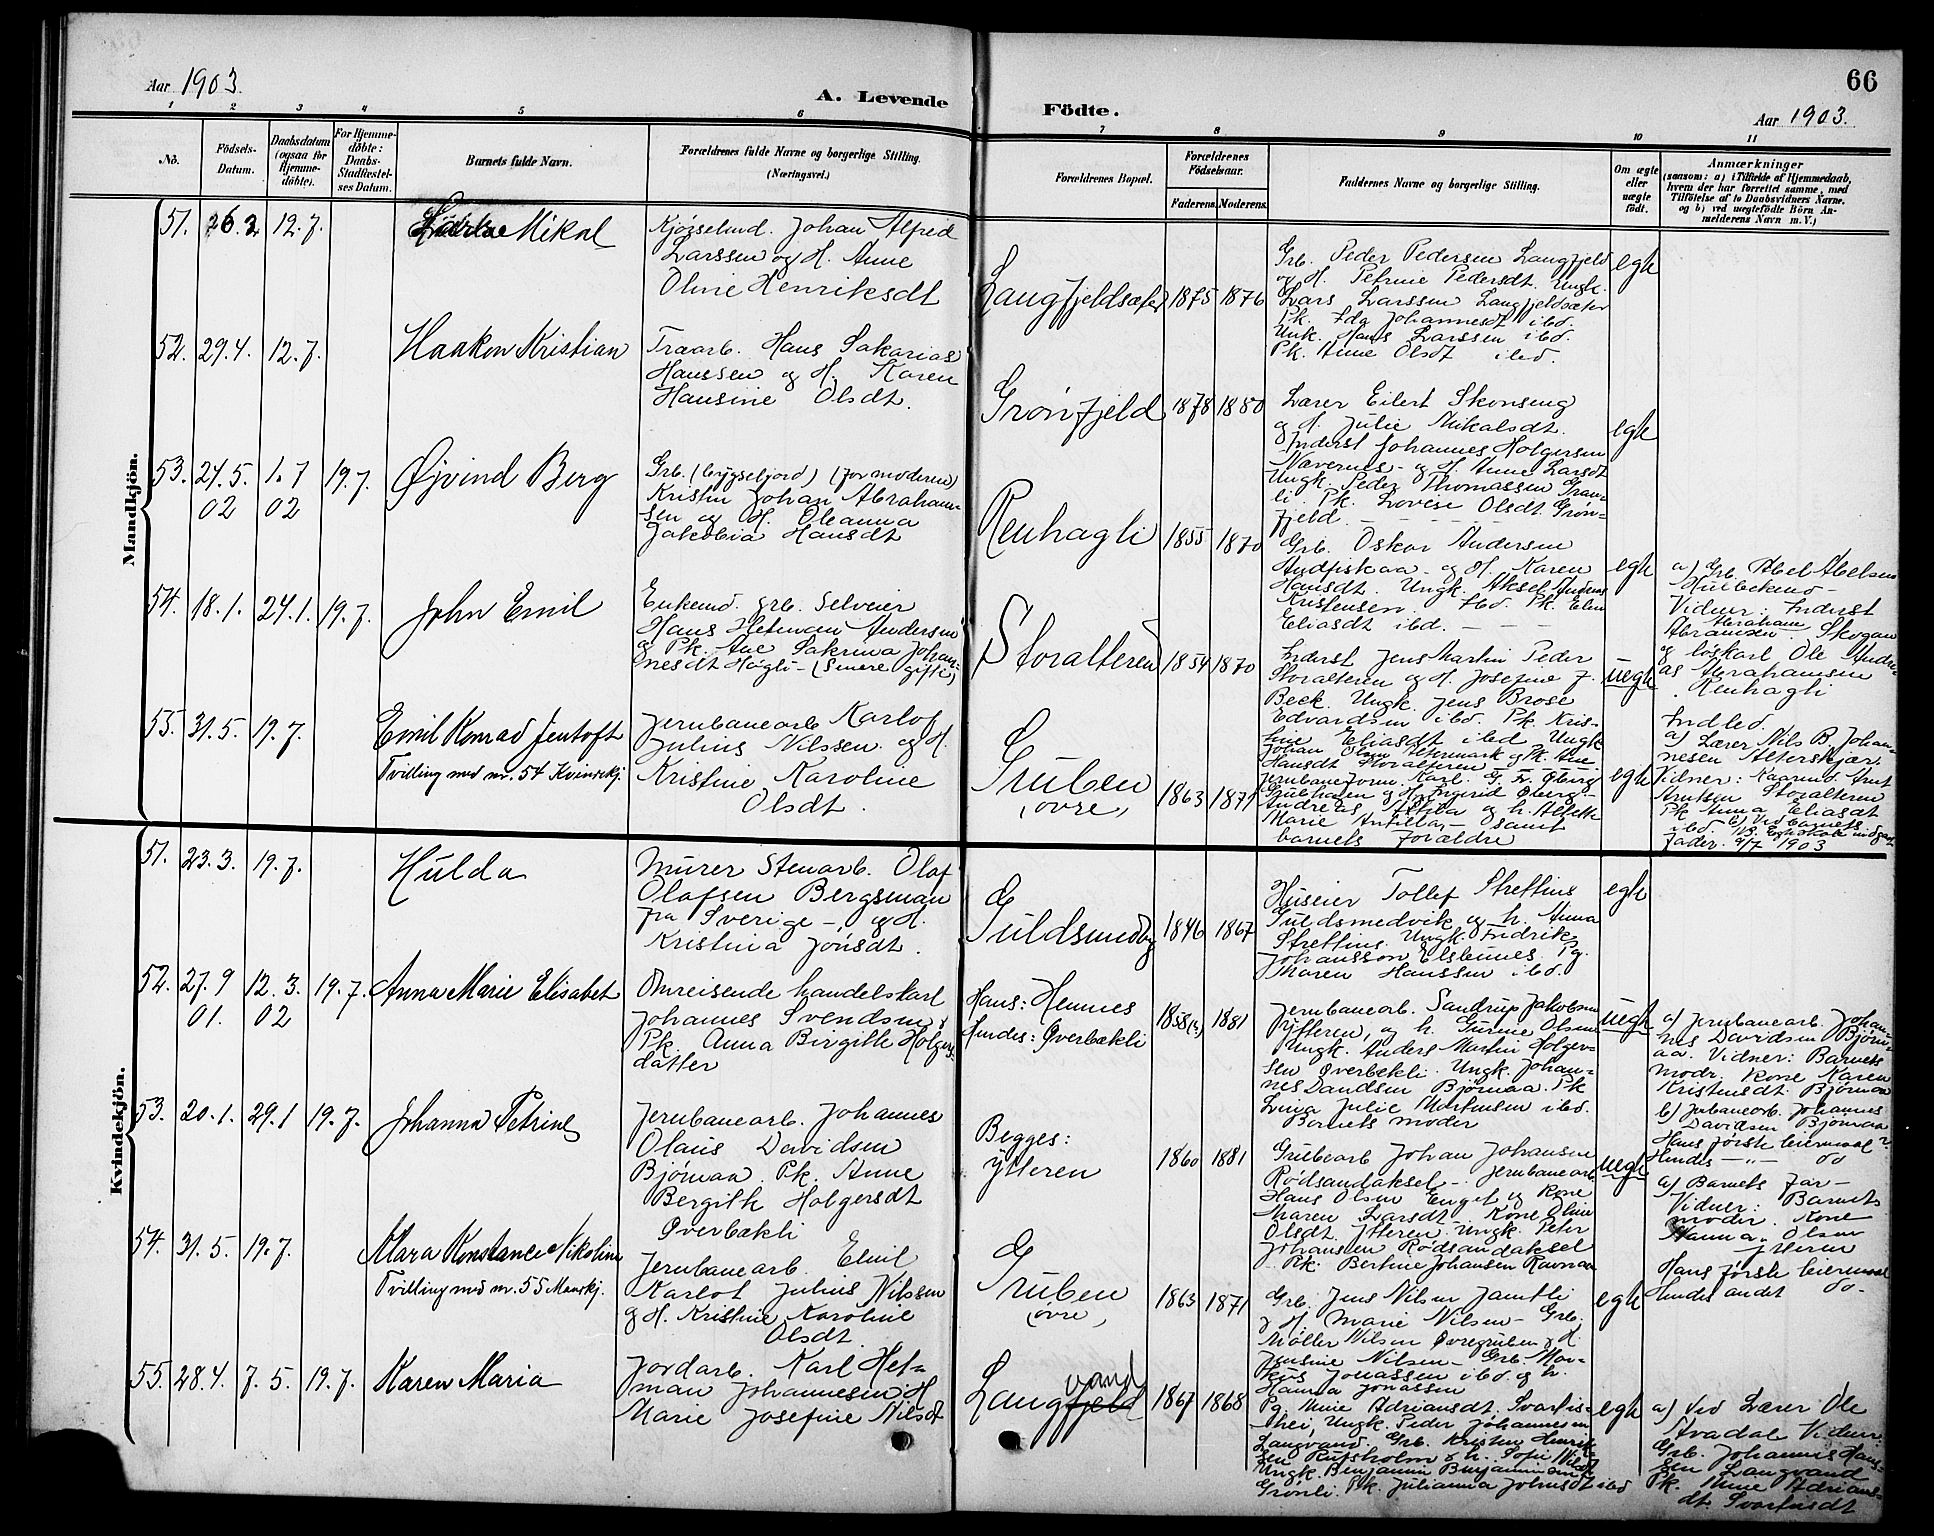 66
Aar 1903.
A. Levende
Födte.
Aar 1903.
1 2 3 4 5 6 7 8 9 10 11
No.
Födsels-
Datum.
Daabsdatum
(ogsaa for
Hjemme-
døbte).
For Hjemme-
døbte:
Daabs-
Stadfæstel-
ses Datum.
Barnets fulde Navn.
Forældrenes fulde Navne og borgerlige Stilling.
(Næringsvei.)
Forældrenes Bopæl.
Forældrenes
Födselsaar.
Faderens.
Moderens.
Faddernes Navne og borgerlige Stilling.
Om ægte
eller
uægte
født.
Anmærkninger
(saasom: a) i Tilfælde af Hjemmedaab,
hvem der har forrettet samme, med
Tilföielse af to Daabsvidners Navne,
og b) ved uægtefödte Börn An-
melderens Navn m. V.)
Mandkjön.
51. 26.2 12.7. Mikal
Johan Alfred
Larssen og H. Anne
Oline Henriksdt
Langfjeldsæter 1875 1876
Grb. Peder Pedersen Langfjeld
og H. Petrine Pedersdt. Ungk.
Lars Larssen Langfjeldsæter
Pk. Ida Johannesdt ibd.
Ungk. Hans Larssen ibd.
Pk. Anne Olsdt ibd.
egte
52. 29.4. 12.7. Haakon Kristian
Hans Sakarias
Hanssen og H. Karen
Hansine Olsdt.
Grønfjeld 1878 1880
Lærer Eilert Skonseng
og H. Julie Mikalsdt.
Inderst Johannes Holgersen
Nævernes - og H. Anne Larsdt
Ungk. Peder Thomassen Gran-
li. Pk. Lovise Olsdt. Grøn-
fjeld.
egte
53. 24.5. 02 1.7 02 19.7. Øjvind Berg
Grb. (bygseljord) (for moderen)
Kristin Johan Abraham-
sen og H. Oleanna
Jakobia Hansdt
Renhagli 1855 1870
Grb. Oskar Andersen
og H. Karen
Hansdt. Ungk. Aksel
Kristensen. Ibd. Pk. Elen
Eliasdt ibd.
egte
a) Grb. Abel Abelsen
Vidner: Inderst
Abraham
Abramsen Skogan
og løskarl Ole Andre-
as Abrahamsen
Renhagli
54. 18.1. 24.1. 19.7. John Emil
Enkemd. grb. selveier
Hans Hetman Andersen
og Pk. Ane Sakrina Johan-
nesdt Høgli - (Senere gifte)
Storalteren 1854 1870
Inderst Jens Martin Peder
Storalteren og H. Josefine J.
Beck. Ungk. Jens Brose
Edvardsen ibd. Pk. Kris-
tine Eliasdt ibd Ungk
Johan Olsen Altermark og Pk. Ane
Hansdt Storalteren
uegte
Indled.
a) Lærer Nils B. Johan-
nesen Alterskjær.
Vidner: Kaarmd. Arnt
Arntsen Storalteren
Pk. Anna Eliasdt
ibd. b) Ved barnets
fader. 9/7 1903
55. 31.5. 19.7. Emil Konrad Jentoft
Tvilling med nr. 54 Kvindekj.
Jernbanearb Karlof
Julius Nilssen og H.
Kristine Karoline
Olsdt.
Gruben
(øvre) 1863 1871
Jernbaneform. Karl G. Fr. Øberg
Grubhaugen og H. Ingrid Øberg -
Andreas Antilla og h. Albette
Marie Antilla - samt
barnets forældre
egte
Kvindekjön.
51. 23.3. 19.7. Hulda
Murer Stenarb. Olaf
Olafsen Bergsman
fra Sverige - og H.
Kristina Jonsdt.
Guldsmedvig 1846 1867
Huseier Tollef Streftins
Guldsmedvik og h. Anna
Streftins. Ungk. Fredrik
Johansson Elsbennes. Pg.
Maren Hanssen ibd.
egte
52. 27.9 01. 12.3. 02 19.7. Anna Marie Elisabet
Omreisende handelskarl
Johannes Svendsen &
Pk. Anna Birgitte Holgers-
datter
Hans: Hemnes
Hendes: Øverbækli 1858(?) 1881
Jernbanearb. Sandrup Jakobsen
Ytteren, og h. Gurine Olsen
Ungk. Anders Martin Holger-
sen Øverbækli. Ungk. Johan-
nes Davidsen Bjørnaa. Pk
Lina Julie Mortensen ibd.
Barnets moder
uegte
a) Jernbanearb. Johan-
nes Davidsen Bjørn-
aa. Vidner: Barnets
modr. Kone Karen
Kristensdt. Bjørnaa
b) Jernbanearb. Johannes
Davidsen Bjørnaa
Hans første leiermaal?
Hendes - " - do
53. 20.1. 29.1 19.7. Johanna Petrine
Jernbanearb. Johannes
Olaus Davidsen
Bjørnaa. Pk. Anne
Bergitte Holgersdt
Øverbækli
Begges:
Ytteren 1860 1881
Grubearb Johan Johansen
Rødsandaksel - Jernbanearb
Hans Olsen Enget og Kone
Maren Larsdt - Kone Oline
Olsdt. Ytteren. Ungk. Peter
Johansen Rødsandaksel
Pk. Bertine Johansen Ravnaa
uegte
a) Barnets far -
Vidner: Barnets
moder. Kone
Hanna Olsen
Ytteren
Hans første leiermaal
Hendes andet do.
54. 31.5. 19.7. Klara Konstance Nikoline
Tvilling med nr. 55 Mandkj.
Jernbanearb. Emil
Karlot Julius Nilssen
og H. Kristine Karoline
Olsdt.
Gruben
(øvre) 1863 1871
Grb. Jens Nilsen Jamtli
og H. Marie Nilsen - Grb.
Møller Nilsen Øvregruben og H.
Jensine Nilsen - Grb. Mor-
tens Jonassen ibd. og h.
Hanna Jonassen
egte
55. 28.4. 7.5. 19.7. Karen Maria
Jordarb. Karl Het-
man Johannesen H
Marie Josefine Nilsdt
Langfjeld vand 1867 1868
Pg. Mine Adriansdt. Svartis-
hei, Ungk. Peder Johannesen
Langvand. Grb. Kristen Henrik-
sen Rufsholm og h. Sofie Nilsdt
Ungk. Benjamin Benjaminsen
Grønli. Pk. Julianna Johnsdt ibd
egte
a) Ved Lærer Ole
Avadal Vidner:
Grb. Johannes Hans-
sen Langvand
Pk. Mine Adrians-
dt. Svartisdt